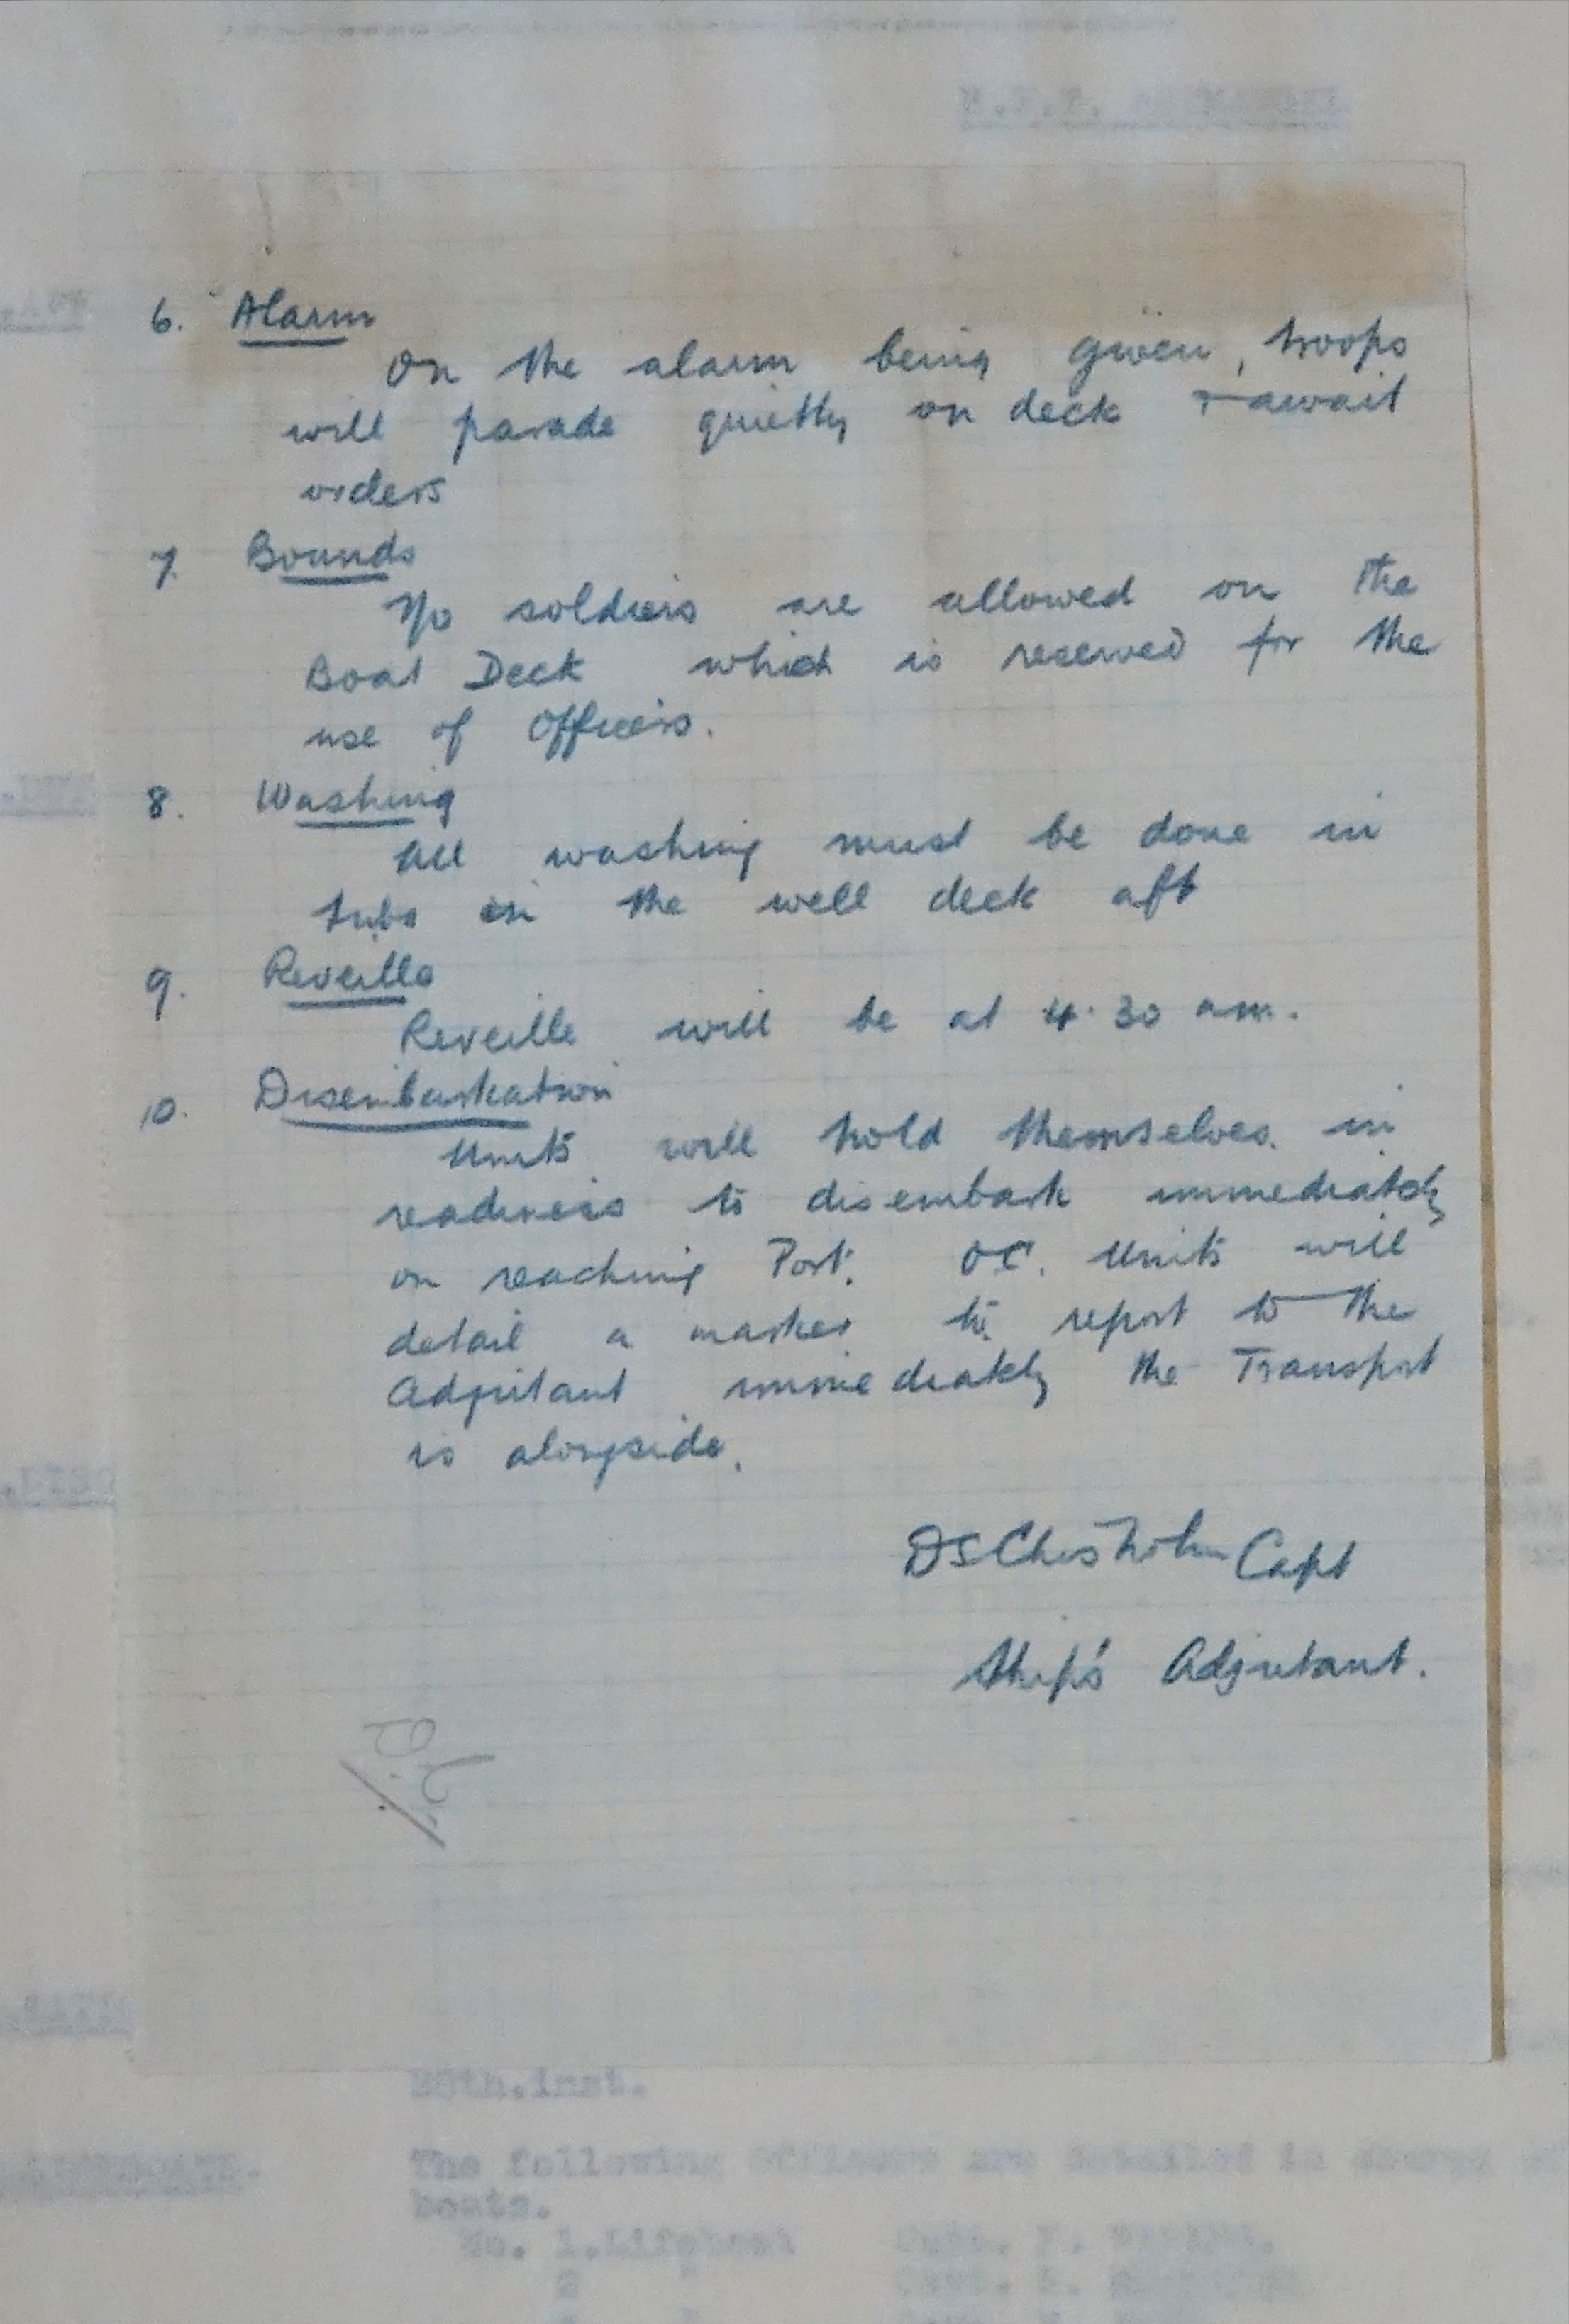 6. Alarm
On the alarm being given, troops
will parade quietly on deck + await
orders
7. Bounds
No soldiers are allowed on the
Boat Deck which is reserved for the
use of Officers.
8. Washing
All washing must be done in
tubs in the well deck aft
9. Reveille
Reveille will be at 4.30 am.
10. Disembarkation
Units will hold themselves in
readiness to disembark immediately
on reaching Port. OC. Units will
detail a marker to report to the
Adjutant immediately the Transport
is alongside.
DS Chisholm Capt
Ship's Adjutant.
28th.inst.
The following Officers are detailed in charge of
boats.
No. 1.Lifeboat
2 "